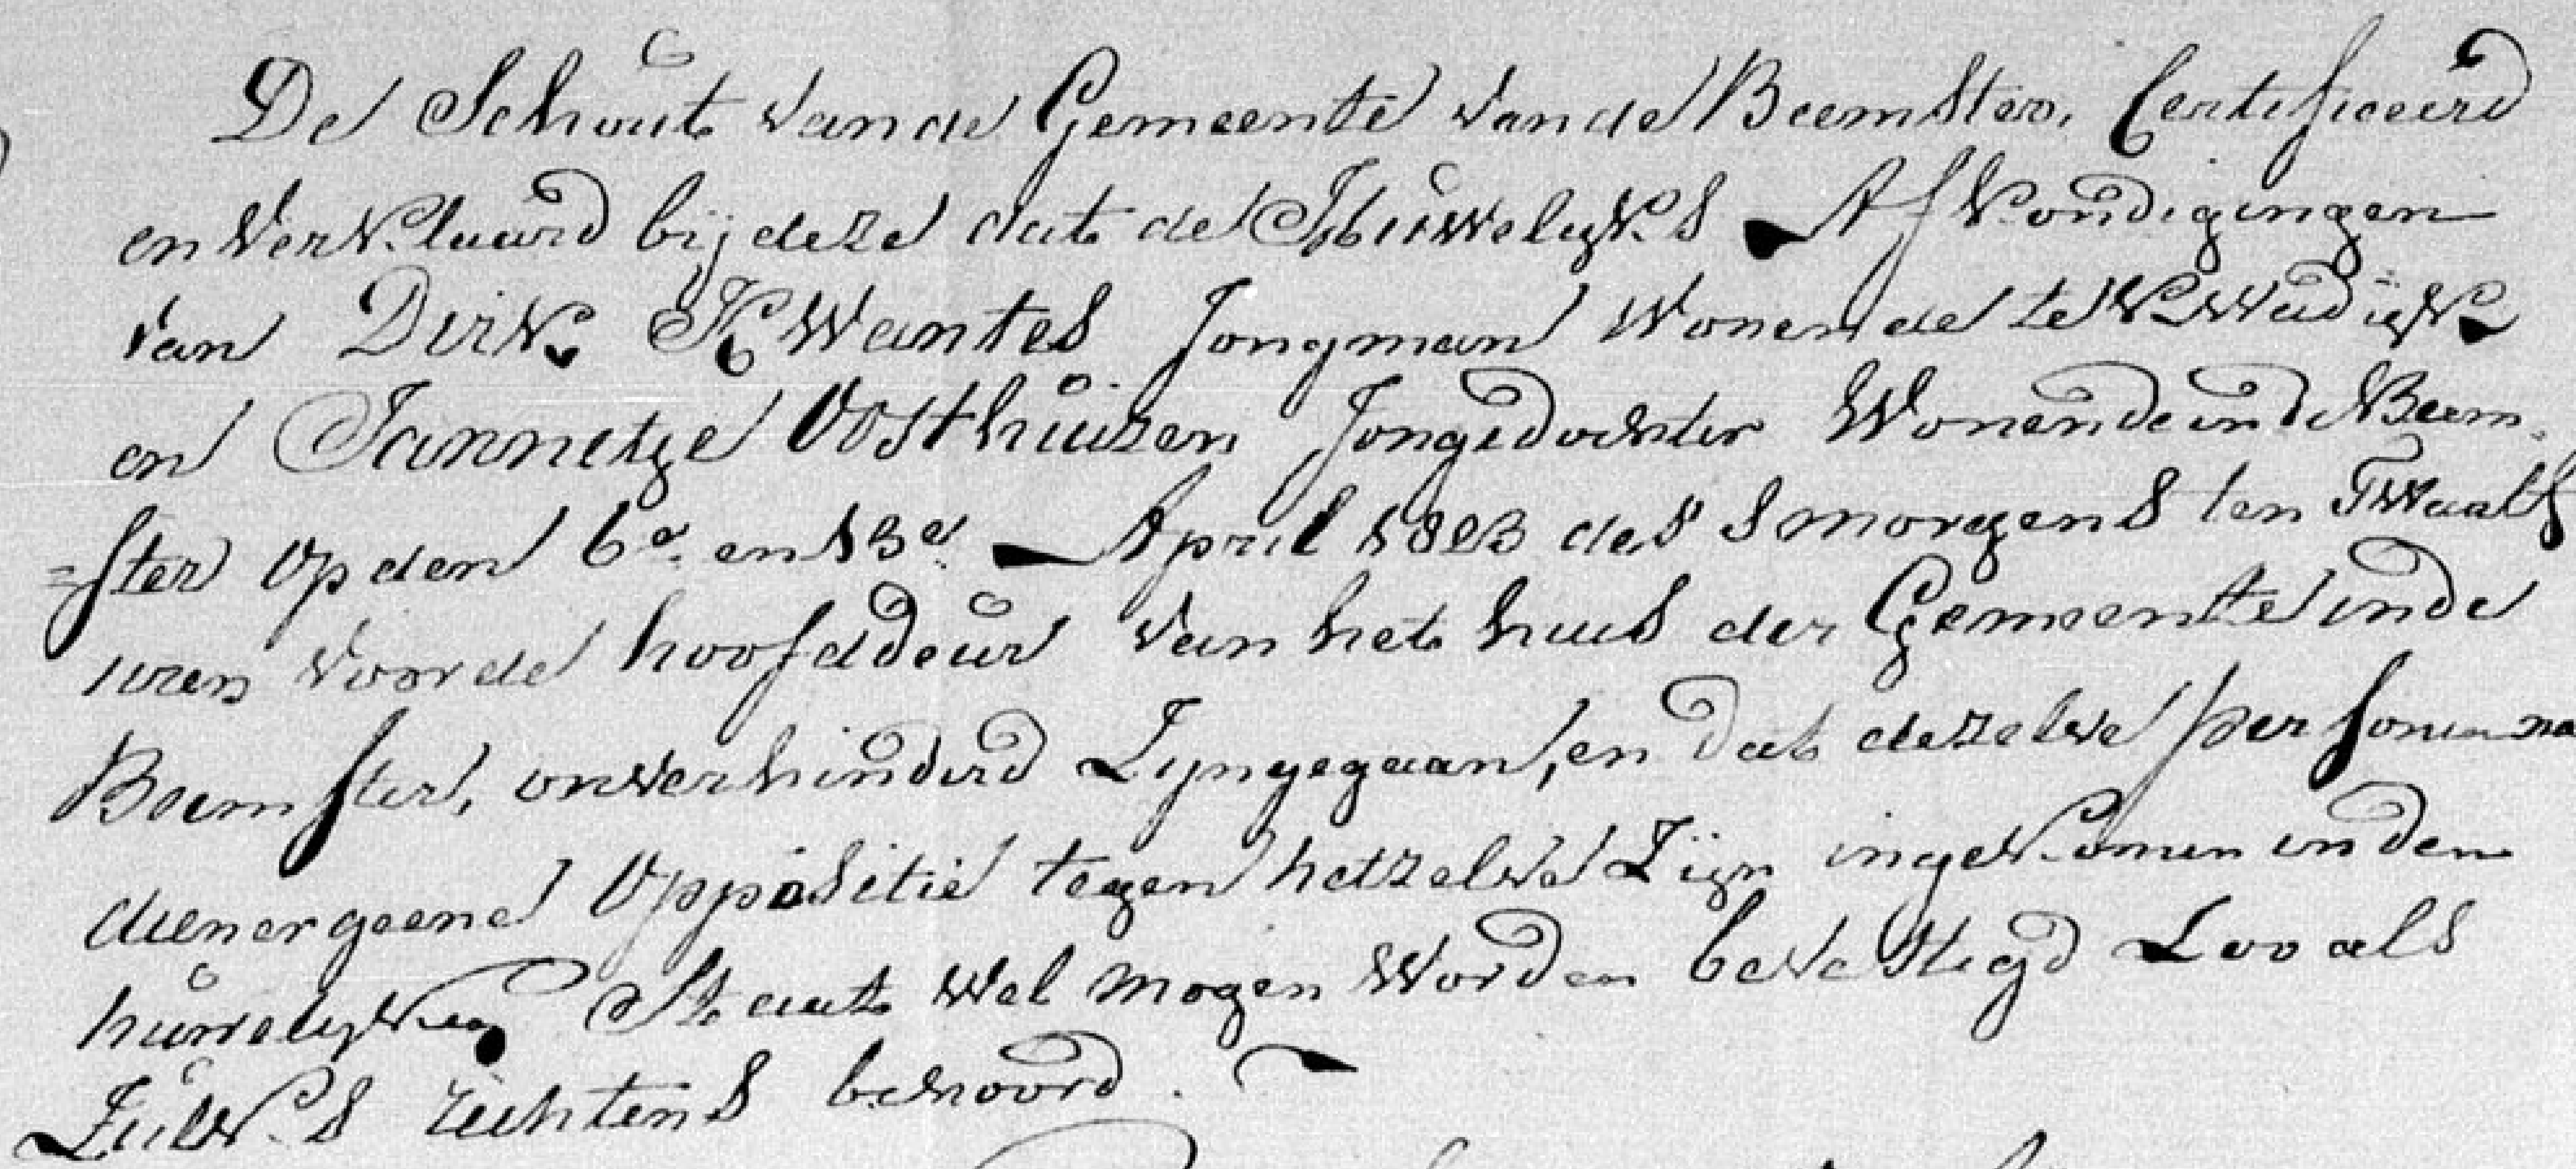 De Schout van de Gemeente van de Beemster, Certificeerd
en verklaard bij deze dat de Huwelijks Afkondigingen
van Dirk Kwantes Jongman Wonende te Kwadijk
en Jannetje Oosthuizen Jongedochter Wonende in de Beem-
=ster op den 6e. en 13e. April 1823 des smorgens ten Twaalf
uren voor de hoofddeur van het huis der Gemeente in de
Beemster, onverhinderd Zijn gegaan, en dat dezelve persoonen na
dien er geene Oppositie tegen hetzelve Zijn ingekomen in den
huwelijken Staat wel mogen Worden bevestigd Zoo als
Zulks rechtens behoord.